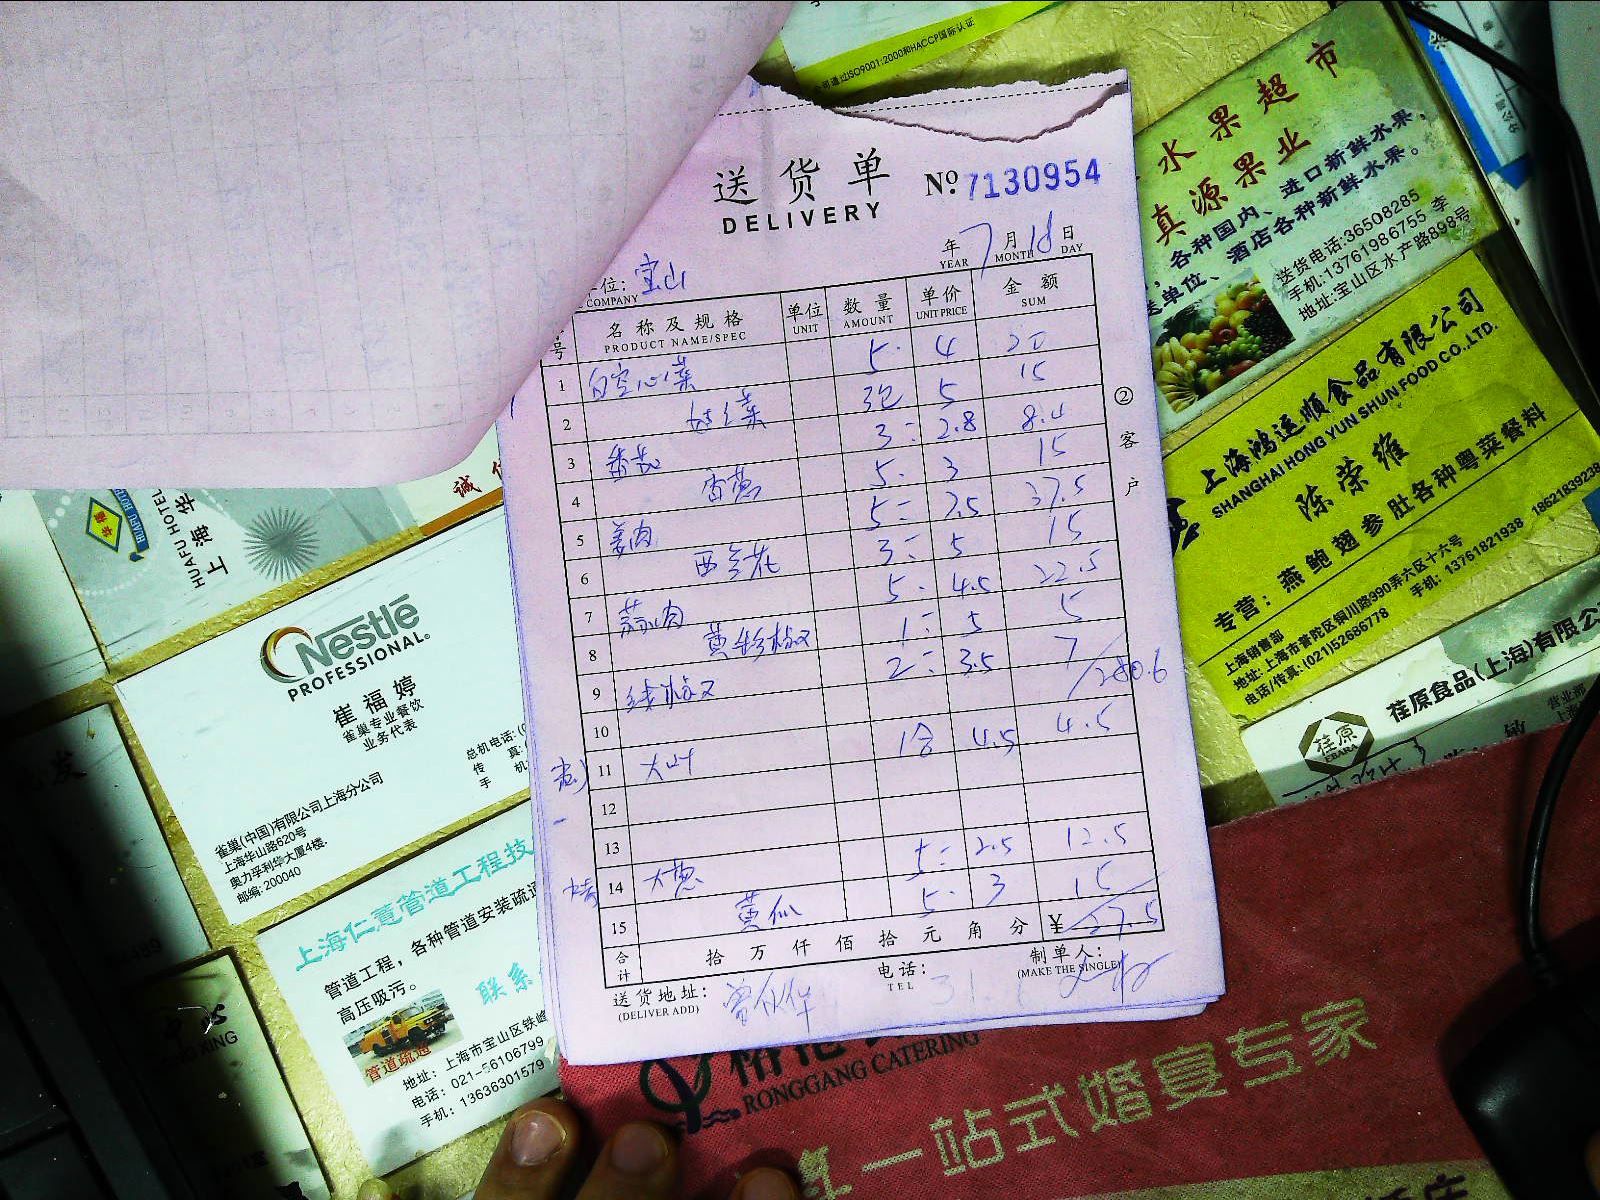 公司通过ISO9001:2000和HACCP国际认证
水果超市
真源果业
各种国内、进口新鲜水果,
单位、酒店各种新鲜水果。
送货电话:36508285
手机:13761986755 李
地址:宝山区水产路898号
送货单
DELIVERY
№ 7130954
年 7 月 18 日
YEAR MONTH DAY
位: 宝山
COMPANY
号 名称及规格 单位 数量 单价 金额
PRODUCT NAME/SPEC UNIT AMOUNT UNIT PRICE SUM
1 白空心菜 5 4 20
2 3包 5 15
3 番茄 3 2.8 8.4
4 香葱 5 3 15
5 姜肉 5 7.5 37.5
6 西兰花 3 5 15
7 蒜肉 5 4.5 22.5
8 黄彩椒 1 5 5
9 线椒 2 3.5 7
280.6
10
11 大叶 1合 4.5 4.5
12
13
14 大葱 5 2.5 12.5
15 黄瓜 5 3 15
合计 拾万仟佰拾元角分 ¥ 27.5
送货地址:
(DELIVER ADD)
电话:
TEL
制单人:
(MAKE THE SINGLE)
②客户
上海鸿运顺食品有限公司
SHANGHAI HONG YUN SHUN FOOD CO.,LTD.
陈荣维
专营:燕鲍翅参肚各种粤菜餐料
上海销售部
地址:上海市普陀区铜川路990弄六区十六号
电话/传真:(021)52686778 手机:13761821938 18621839238
荏原食品(上海)有限公
荏原
EBARA
营业部
诚信
华甫
HUAFU HOTEL
上海华
HUAFU HOTEL
Nestlé
PROFESSIONAL
崔福婷
雀巢专业餐饮
业务代表
总机电话:(
传真
手机
雀巢(中国)有限公司上海分公司
上海华山路620号
奥力孚利华大厦4楼.
邮编:200040
上海仁薏管道工程技
管道工程,各种管道安装疏通
高压吸污。
联系
管道疏通
地址:上海市宝山区铁峰
电话:021-56106799
手机:13636301579
RONGGANG CATERING
一站式婚宴专家